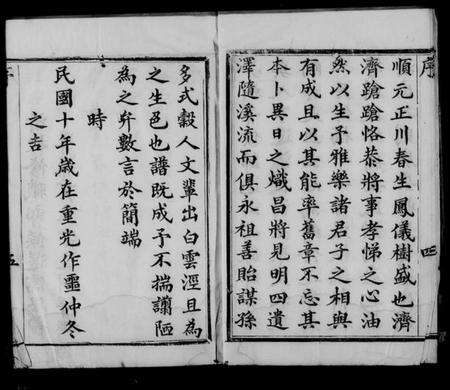 序
四
順元正川春生鳳儀樹盛也濟
濟蹌蹌恪恭將事孝悌之心油
然以生予雅樂諸君子之相與
有成且以其能率舊章不忘其
本卜異日之熾昌將見明四遺
澤隨溪流而俱永祖善貽謀孫
多式穀人文輩出白雲涇且為
之生色也譜既成予不揣譾陋
為之弁數言於簡端
時
民國十年歲在重光作噩仲冬
之吉
五